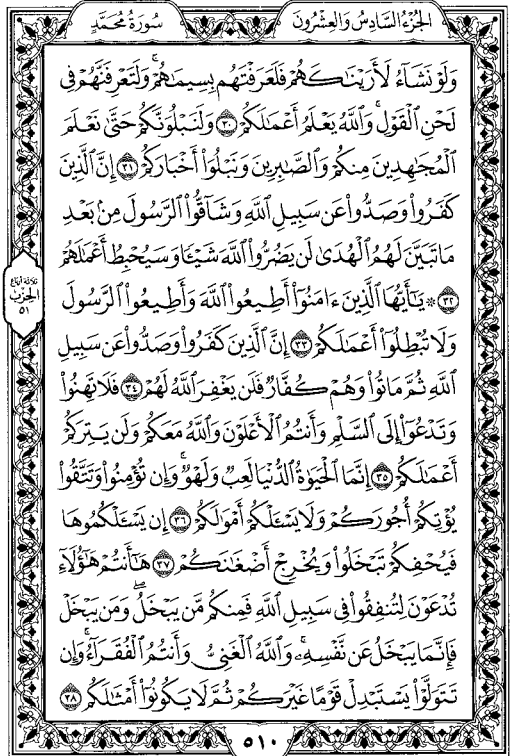 الجزء السادس والعشرون
سورة محمد
وَلَوْ نَشَآءُ لَأَرَيْنَٰكَهُمْ فَلَعَرَفْتَهُم بِسِيمَٰهُمْ ۚ وَلَتَعْرِفَنَّهُمْ فِى
لَحْنِ ٱلْقَوْلِ ۚ وَٱللَّهُ يَعْلَمُ أَعْمَٰلَكُمْ ٣٠ وَلَنَبْلُوَنَّكُمْ حَتَّىٰ نَعْلَمَ
ٱلْمُجَٰهِدِينَ مِنكُمْ وَٱلصَّٰبِرِينَ وَنَبْلُوَا۟ أَخْبَارَكُمْ ٣١ إِنَّ ٱلَّذِينَ
كَفَرُوا۟ وَصَدُّوا۟ عَن سَبِيلِ ٱللَّهِ وَشَآقُّوا۟ ٱلرَّسُولَ مِنۢ بَعْدِ
مَا تَبَيَّنَ لَهُمُ ٱلْهُدَىٰ لَن يَضُرُّوا۟ ٱللَّهَ شَيْـًٔا وَسَيُحْبِطُ أَعْمَٰلَهُمْ
٣٢ ۞ يَٰٓأَيُّهَا ٱلَّذِينَ ءَامَنُوٓا۟ أَطِيعُوا۟ ٱللَّهَ وَأَطِيعُوا۟ ٱلرَّسُولَ
وَلَا تُبْطِلُوٓا۟ أَعْمَٰلَكُمْ ٣٣ إِنَّ ٱلَّذِينَ كَفَرُوا۟ وَصَدُّوا۟ عَن سَبِيلِ
ٱللَّهِ ثُمَّ مَاتُوا۟ وَهُمْ كُفَّارٌ فَلَن يَغْفِرَ ٱللَّهُ لَهُمْ ٣٤ فَلَا تَهِنُوا۟
وَتَدْعُوٓا۟ إِلَى ٱلسَّلْمِ وَأَنتُمُ ٱلْأَعْلَوْنَ وَٱللَّهُ مَعَكُمْ وَلَن يَتِرَكُمْ
أَعْمَٰلَكُمْ ٣٥ إِنَّمَا ٱلْحَيَوٰةُ ٱلدُّنْيَا لَعِبٌ وَلَهْوٌ ۚ وَإِن تُؤْمِنُوا۟ وَتَتَّقُوا۟
يُؤْتِكُمْ أُجُورَكُمْ وَلَا يَسْـَٔلْكُمْ أَمْوَٰلَكُمْ ٣٦ إِن يَسْـَٔلْكُمُوهَا
فَيُحْفِكُمْ تَبْخَلُوا۟ وَيُخْرِجْ أَضْغَٰنَكُمْ ٣٧ هَٰٓأَنتُمْ هَٰٓؤُلَآءِ
تُدْعَوْنَ لِتُنفِقُوا۟ فِى سَبِيلِ ٱللَّهِ فَمِنكُم مَّن يَبْخَلُ ۖ وَمَن يَبْخَلْ
فَإِنَّمَا يَبْخَلُ عَن نَّفْسِهِۦ ۚ وَٱللَّهُ ٱلْغَنِىُّ وَأَنتُمُ ٱلْفُقَرَآءُ ۚ وَإِن
تَتَوَلَّوْا۟ يَسْتَبْدِلْ قَوْمًا غَيْرَكُمْ ثُمَّ لَا يَكُونُوٓا۟ أَمْثَٰلَكُم ٣٨
ثلاثة أرباع
الحزب
٥١
٥١٠